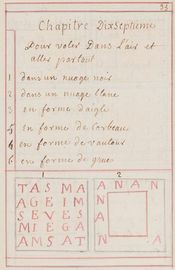 35
Chapitre DixSeptieme
Pour voler Dans L'air et
aller partout
1 dans un nuage noir
2 dans un nuage blanc
3 en forme d'aigle
5 en forme de Corbeau
4 en forme de vautour
6 en forme de grue
1
TASMA
AGEIM
SEVES
MIEGA
AMSAT
2
ANAN
N
A
N
A